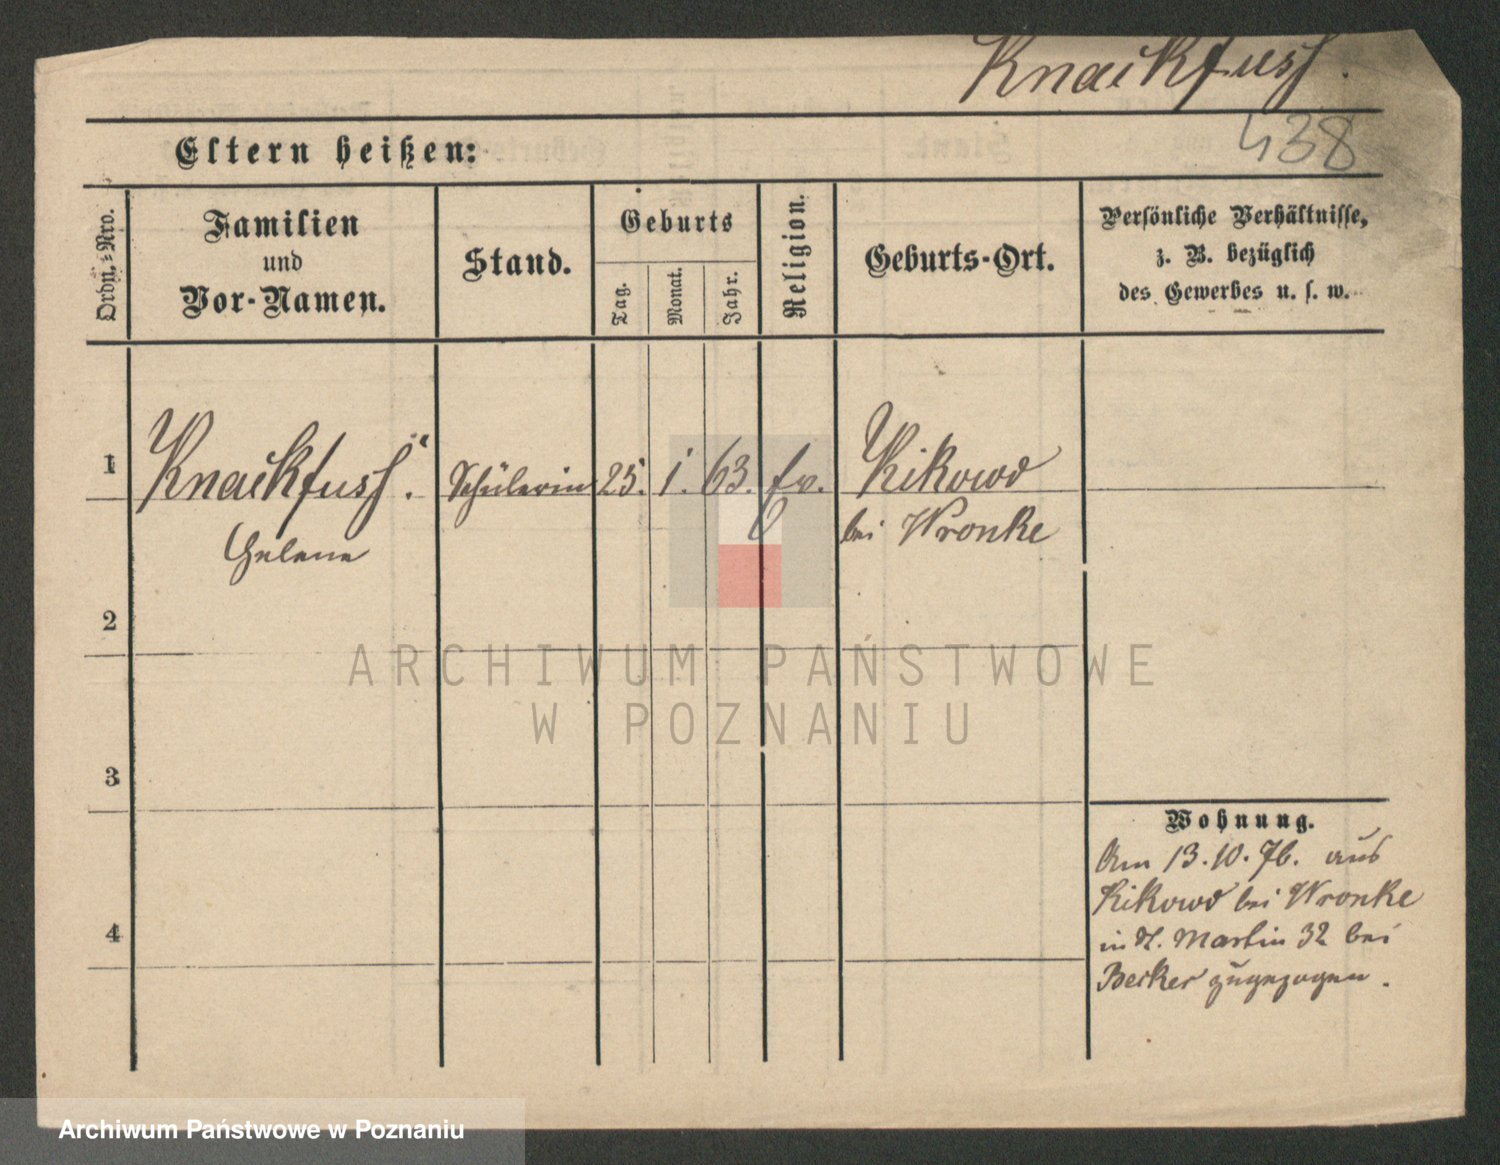 Knaikfuss.
438
Eltern heißen:
Ordn.-Nro.
Familien
und
Vor-Namen.
Stand.
Geburts
Tag.
Monat.
Jahr.
Religion.
Geburts-Ort.
Persönliche Verhältnisse,
z. B. bezüglich
des Gewerbes u. s. w.
1 Knaikfuss. Schülerin 25. 1. 63. ev. Kikowo
Helene bei Wronke
2
3
4
Wohnung.
Am 13.10.76. aus
Kikowo bei Wronke
in St. Martin 32 bei
Becker zugezogen.
ARCHIWUM PAŃSTWOWE
W POZNANIU
Archiwum Państwowe w Poznaniu